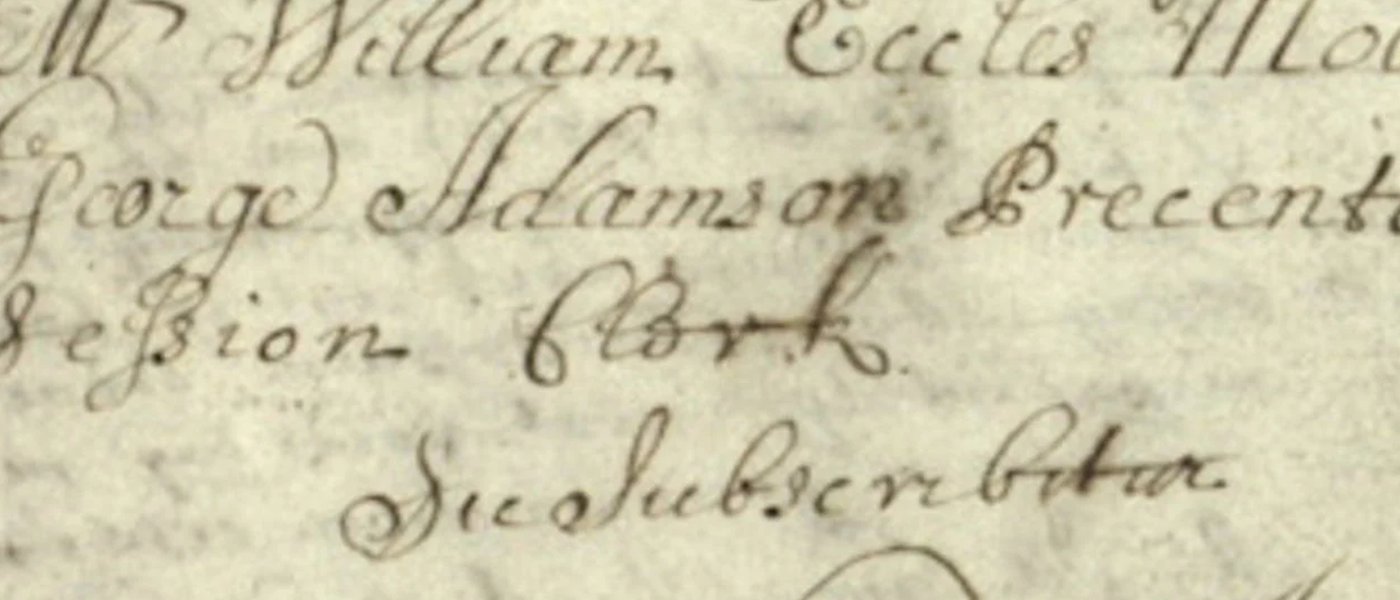 Mr William Eccles Mo
George Adamson Precent
Session Clerk
Sic Subscribitur